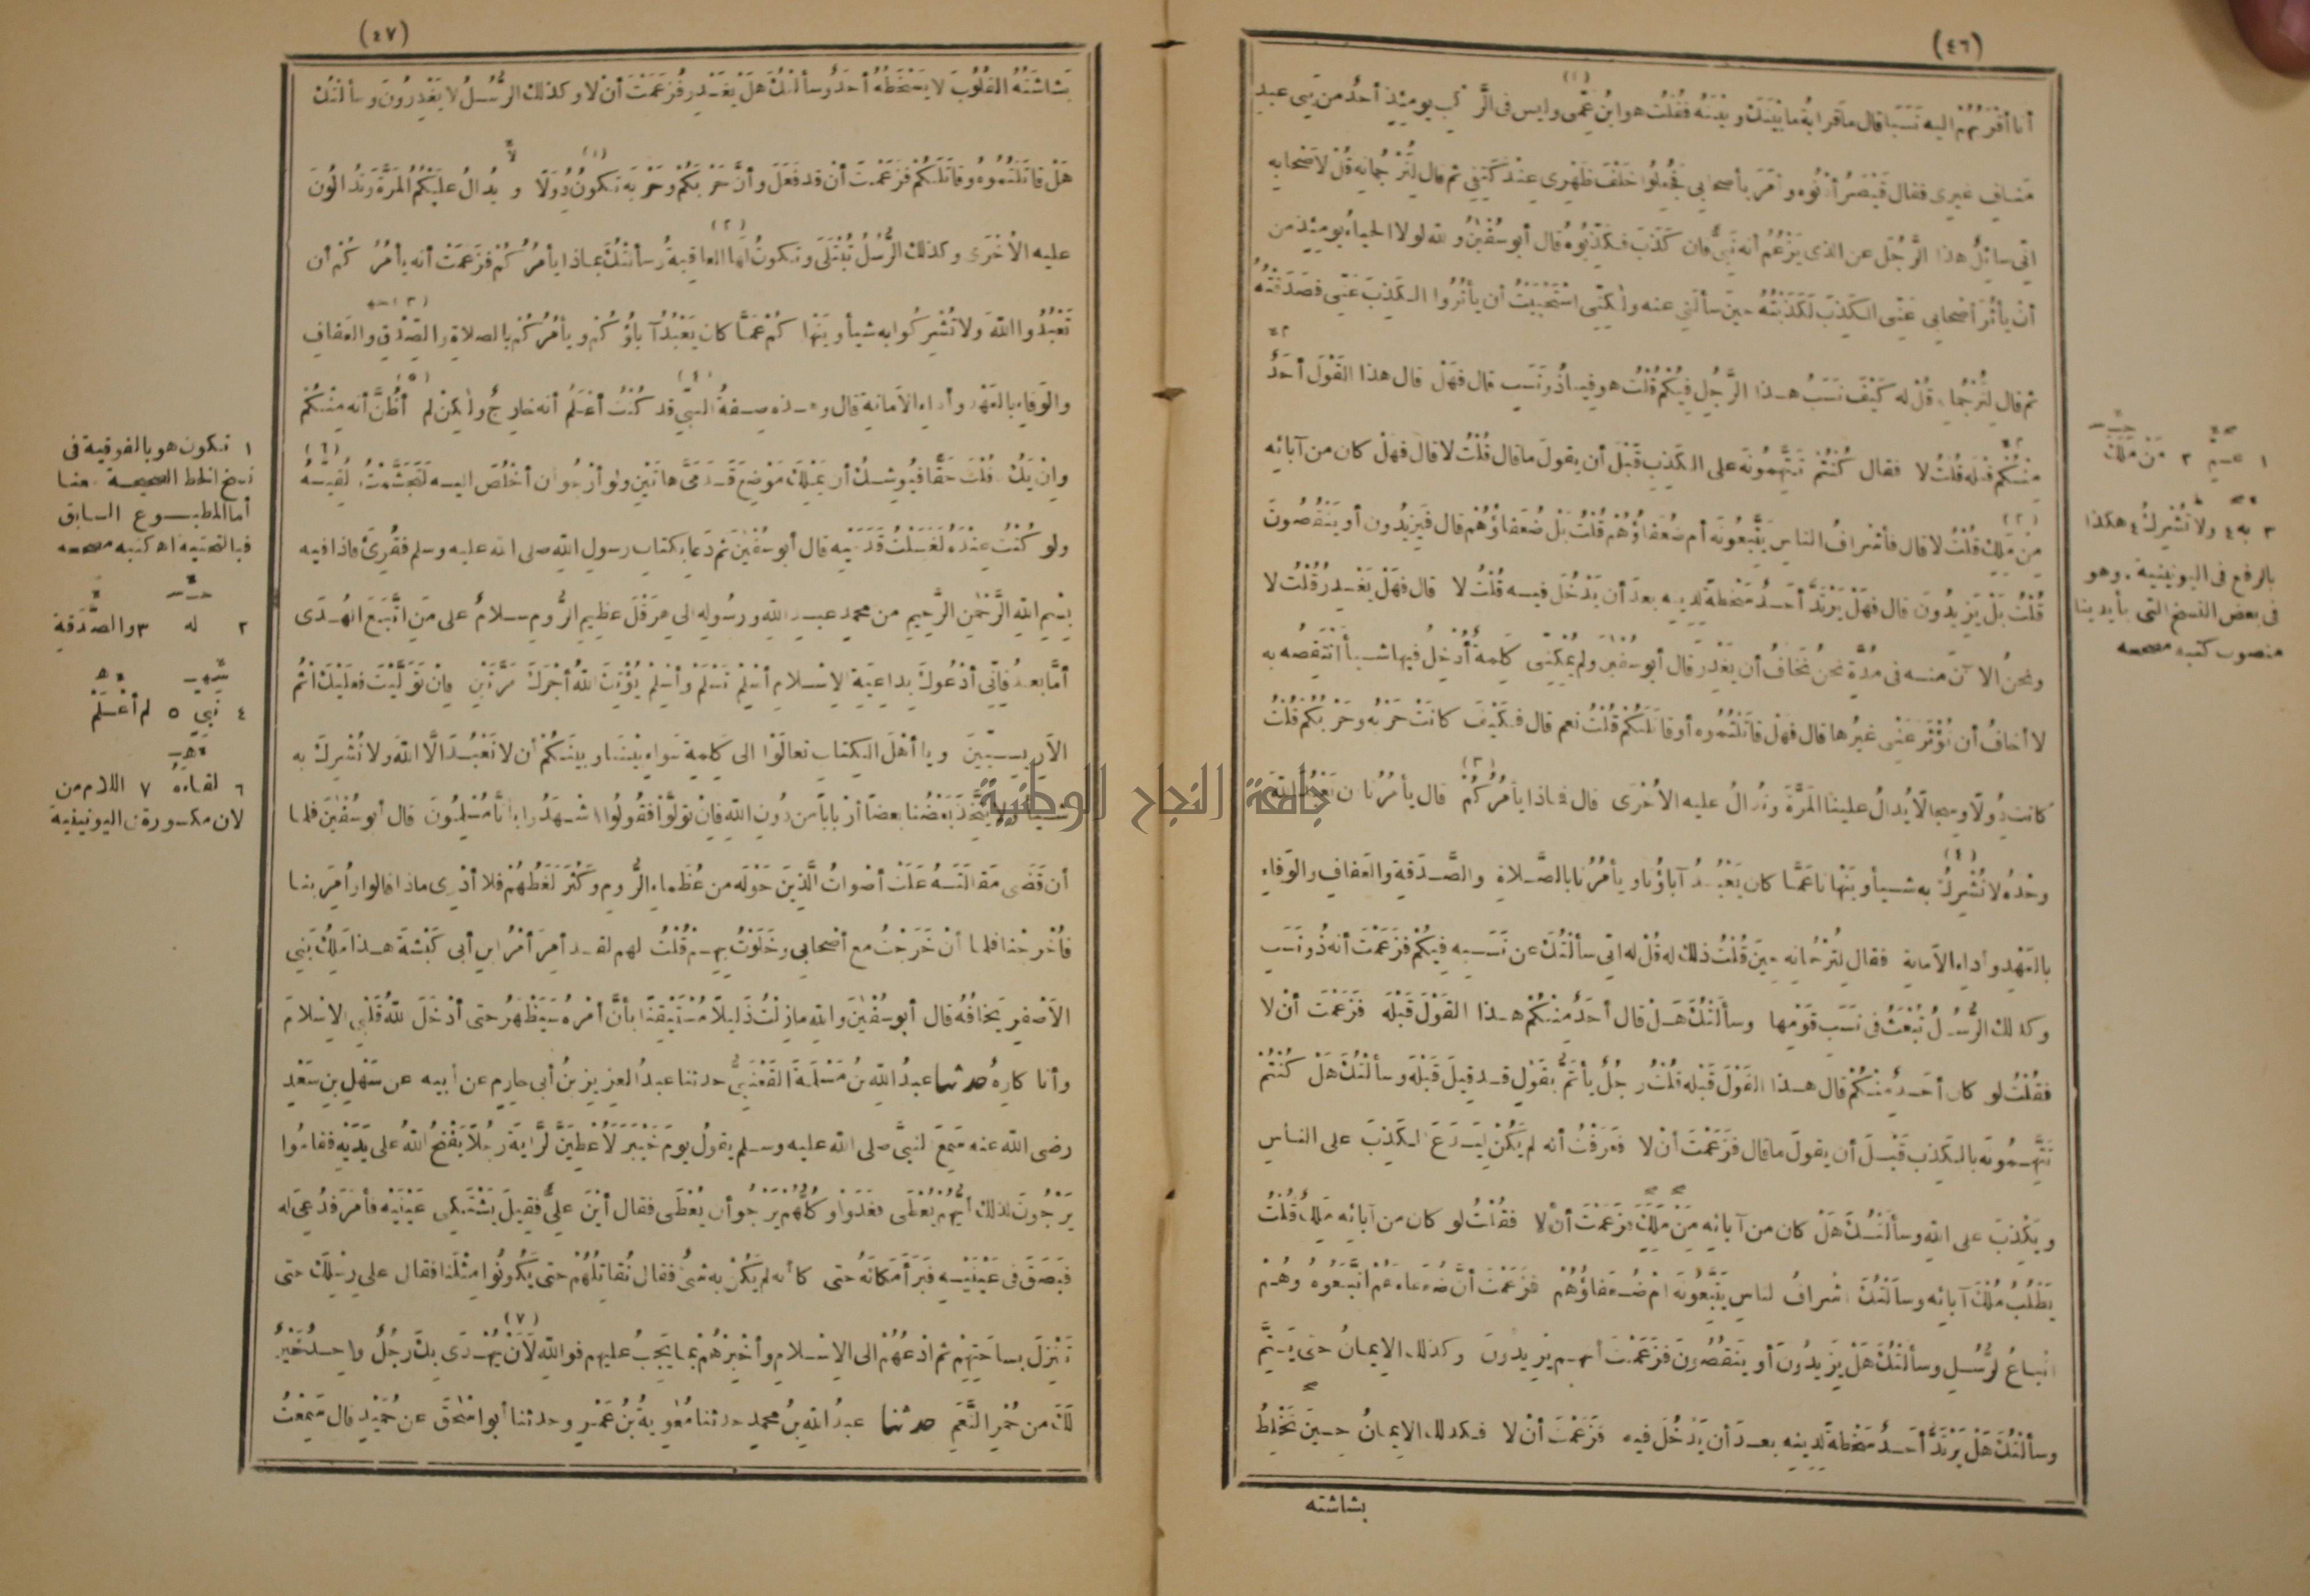 (٤٦)
أنا أقْرَبُهُمْ اليه نَسَبًا قال ما قَرابَةُ ما بَيْنَكَ وبَيْنَهُ فَقُلْتُ هو ابنُ عَمِّى وليس فى الرَّكْبِ يومئِذٍ أحدٌ من بَنِى عبدِ
(١)
مَنافٍ غيرِى فقال قَيْصَرُ أدْنُوهُ وأمَرَ بأصحابِى فَجُعِلُوا خَلْفَ ظَهْرِى عِنْدَ كَتِفِى ثم قال لِتُرْجُمانِهِ قُلْ لأصْحابِهِ
انِّى سائِلٌ هذا الرَّجُلَ عن الذى يَزْعُمُ أنه نَبِىٌّ فان كَذَبَ فَكَذِّبُوهُ قال أبو سُفْيٰنَ والله لولا الحياءُ يومئِذٍ من
أنْ يأثُرَ أصْحابِى عَنِّى الكَذِبَ لَكَذَبْتُهُ حينَ سألَنِى عنه ولٰكِنِّى اسْتَحْيَيْتُ أن يأثُرُوا الكَذِبَ عَنِّى فصَدَقْتُهُ
ثم قال لِتُرْجُمانِهِ قُلْ له كَيْفَ نَسَبُ هذا الرَّجُلِ فِيكُمْ قُلْتُ هو فِينا ذُو نَسَبٍ قال فهَلْ قال هذا القَوْلَ أحَدٌ
مِنْكُمْ قَبْلَهُ قُلْتُ لا فقال كُنْتُمْ تَتَّهِمُونَهُ على الكَذِبِ قَبْلَ أن يقولَ ما قال قُلْتُ لا قال فهَلْ كان من آبائِهِ
مِنْ مَلِكٍ قُلْتُ لا قال فأشْرافُ الناسِ يَتَّبِعُونَهُ أم ضُعَفاؤُهُمْ قُلْتُ بَلْ ضُعَفاؤُهُمْ قال فيَزِيدُون أو يَنْقُصُونَ
(٢)
قُلْتُ بَلْ يَزِيدُونَ قال فهَلْ يَرْتَدُّ أحَدٌ سَخْطَةً لِدِينِهِ بعدَ أن يَدْخُلَ فيه قُلْتُ لا قال فهَلْ يَغْدِرُ قُلْتُ لا
ونحنُ الآنَ منه فى مُدَّةٍ نحنُ نَخافُ أن يَغْدِرَ قال أبو سُفْيٰنَ ولم يُمْكِنِّى كَلِمَةٌ أُدْخِلُ فيها شيأً أنْتَقِصُهُ به
لا أخافُ أن تُؤْثَرَ عَنِّى غيرُها قال فهَلْ قاتَلْتُمُوهُ أو قاتَلَكُمْ قُلْتُ نعم قال فكَيْفَ كانَتْ حَرْبُهُ وحَرْبُكُمْ قُلْتُ
كانت دُوَلًا وسِجالًا يُدالُ علينا المَرَّةَ ونُدالُ عليه الأُخْرَى قال فماذا يأمُرُكُمْ قال يأمُرُنا أن نَعْبُدَ اللهَ
(٣)
وحْدَهُ لا نُشْرِكُ به شيأ ويَنْهانا عَمَّا كان يَعْبُدُ آباؤُنا ويأمُرُنا بالصَّلاةِ والصَّدَقةِ والعَفافِ والوَفاءِ
(٤)
بالعَهْدِ وأداءِ الأمانةِ فقال لِتُرْجُمانِهِ حِينَ قُلْتُ ذٰلك له قُلْ له انِّى سألْتُكَ عن نَسَبِهِ فِيكُمْ فزَعَمْتَ أنه ذُو نَسَبٍ
وكذلك الرُّسُلُ تُبْعَثُ فى نَسَبِ قَوْمِها وسألْتُكَ هَلْ قال أحَدٌ مِنْكُمْ هذا القَوْلَ قَبْلَهُ فَزَعَمْتَ أنْ لا
فقُلْتُ لو كان أحَدٌ مِنْكُمْ قال هذا القَوْلَ قَبْلَهُ قُلْتُ رجُلٌ يأتَمُّ بقَوْلٍ قد قِيلَ قَبْلَهُ وسألْتُكَ هَلْ كُنْتُمْ
تَتَّهِمُونَهُ بالكَذِبِ قَبْلَ أن يقولَ ما قال فزَعَمْتَ أنْ لا فعَرَفْتُ أنه لم يَكُنْ لِيَدَعَ الكَذِبَ على الناسِ
ويَكْذِبَ على اللهِ وسألْتُكَ هَلْ كان من آبائِهِ مِنْ مَلِكٍ فزَعَمْتَ أنْ لا فقُلْتُ لو كان من آبائِهِ مَلِكٌ قُلْتُ
يَطْلُبُ مُلْكَ آبائِهِ وسألْتُكَ أشْرافُ الناسِ يَتَّبِعُونَهُ أمْ ضُعَفاؤُهُمْ فزَعَمْتَ أنَّ ضُعَفاءَهُمُ اتَّبَعُوهُ وهُمْ
اتْباعُ الرُّسُلِ وسألتُكَ هَلْ يَزِيدُونَ أو يَنْقُصُونَ فزَعَمْتَ أنهم يَزِيدُونَ وكذلك الإيمانُ حتى يَتِمَّ
وسألْتُكَ هَلْ يَرْتَدُّ أحَدٌ سَخْطَةً لِدِينِهِ بعدَ أن يَدْخُلَ فيه فزَعَمْتَ أنْ لا فكذلك الإيمانُ حِينَ تَخْلِطُ
بشاشته
١ عَمٍّ ٢ مَنْ مَلَكَ
٣ به ٤ ولا نُشْرِكُ هكذا
بالرفع فى اليونينية . وهو
فى بعض النسخ التى بأيدينا
منصوب كتبه مصححه
(٤٧)
بَشاشَتُهُ القُلُوبَ لا يَسْخَطُهُ أحَدٌ وسألْتُكَ هَلْ يَغْدِرُ فزَعَمْتَ أنْ لا وكذلك الرُّسُلُ لا يَغْدِرُونَ وسألْتُكَ
هَلْ قاتَلْتُمُوهُ وقاتَلَكُمْ فزَعَمْتَ أنْ قد فَعَلَ وأنَّ حَرْبَكُمْ وحَرْبَهُ تَكونُ دُوَلًا ويُدالُ علَيْكُمُ المَرَّةَ وتُدالُونَ
(١)
عليه الأُخْرَى وكذلك الرُّسُلُ تُبْتَلَى وتَكونُ لَها العاقِبةُ وسألْتُكَ بماذا يأمُرُكُمْ فزَعَمْتَ أنه يأمُرُكُمْ أن
(٢)
تَعْبُدُوا اللهَ ولا تُشْرِكُوا به شيأ ويَنْهاكُمْ عَمَّا كان يَعْبُدُ آباؤُكُمْ ويأمُرُكُمْ بالصلاةِ والصِّدْقِ والعَفافِ
(٣)
والوَفاءِ بالعَهْدِ وأداءِ الأمانةِ قال وهذه صِفةُ النَّبِىِّ قد كُنْتُ أعْلَمُ أنه خارجٌ ولٰكِنْ لم أظُنَّ أنه مِنْكُمْ
(٤) (٥)
وانْ يَكُ ما قُلْتَ حَقًّا فيُوشِكُ أن يَمْلِكَ مَوْضِعَ قَدَمَىَّ هاتَيْنِ ولو أرْجُو أن أخْلُصَ اليه لَتَجَشَّمْتُ لُقِيَّهُ
(٦)
ولو كُنْتُ عِنْدَهُ لَغَسَلْتُ قَدَمَيْهِ قال أبو سُفْيٰنَ ثم دَعا بكتابِ رسولِ اللهِ صلى الله عليه وسلم فقُرِئَ فاذا فيه
بِسْمِ اللهِ الرَّحْمٰنِ الرَّحِيمِ من محمدٍ عبدِ اللهِ ورسُولِهِ الى هِرَقْلَ عظِيمِ الرُّومِ سلامٌ على مَنِ اتَّبَعَ الهُدَى
أمَّا بعدُ فانِّى أدْعُوكَ بِداعِيَةِ الإسْلامِ أسْلِمْ تَسْلَمْ وأسْلِمْ يُؤْتِكَ اللهُ أجْرَكَ مَرَّتَيْنِ فانْ تَوَلَّيْتَ فعلَيْكَ اثْمُ
الأرِيسِيِّينَ ويا أهْلَ الكتابِ تعالَوْا الى كَلِمةٍ سَواءٍ بيْنَنا وبينَكُمْ أن لا نَعْبُدَ الَّا اللهَ ولا نُشْرِكَ به
شيأ ولا يَتَّخِذَ بَعْضُنا بعضًا أرْبابًا من دُونِ اللهِ فانْ تَوَلَّوْا فقُولُوا اشْهَدُوا بأنَّا مُسْلِمُونَ قال أبو سُفْيٰنَ فلما
أن قَضَى مَقالَتَهُ عَلَتْ أصْواتُ الَّذِينَ حَوْلَهُ من عُظَماءِ الرُّومِ وكَثُرَ لَغَطُهُمْ فلا أدْرِى ماذا قالوا وأُمِرَ بِنا
فأُخْرِجْنا فلما أنْ خَرَجْتُ مع أصْحابِى وخَلَوْتُ بِهِمْ قُلْتُ لهم لقد أمِرَ أمْرُ ابنِ أبى كَبْشةَ هذا مَلِكُ بَنِى
الأصْفرِ يَخافُهُ قال أبو سُفْيٰنَ والله مازِلْتُ ذَلِيلًا مُسْتَيْقِنًا بأنَّ أمْرَهُ سَيَظْهَرُ حتى أدْخَلَ اللهُ قَلْبِى الإسْلامَ
وأنا كارِهٌ حدثنا عبدُ اللهِ بنُ مَسْلَمةَ القَعْنَبِىُّ حدثنا عبدُ العزيزِ بنُ أبى حازِمٍ عن أبيه عن سَهْلِ بنِ سَعْدٍ
رضى الله عنه سَمِعَ النبىَّ صلى الله عليه وسلم يقولُ يومَ خَيْبَرَ لَأُعْطِيَنَّ الرَّايَةَ رجُلًا يَفْتَحُ اللهُ على يَدَيْهِ فقامُوا
يَرْجُونَ لذلك أيُّهُمْ يُعْطَى فغَدَوْا وكُلُّهُمْ يَرْجُو أن يُعْطَى فقال أيْنَ عَلِىٌّ فقِيلَ يَشْتَكِى عَيْنَيْهِ فأمَرَ فدُعِىَ له
فبَصَقَ فى عَيْنَيْهِ فبَرَأَ مَكانَهُ حتى كأنه لم يَكُنْ به شَىْءٌ فقال نُقاتِلُهُمْ حتى يَكُونُوا مِثْلَنا فقال على رِسْلِكَ حتى
تَنْزِلَ بساحَتِهِمْ ثم ادْعُهُمْ الى الإسْلامِ وأخْبِرْهُمْ بما يَجِبُ عليهم فوالله لَأَنْ يُهْدَى بِكَ رجُلٌ واحِدٌ خَيْرٌ
(٧)
لَكَ من حُمْرِ النَّعَمِ حدثنا عبدُ اللهِ بنُ محمدٍ حدثنا مُعٰوِيةُ بنُ عَمْرٍو حدثنا أبو اسْحٰقَ عن حُمَيْدٍ قال سَمِعْتُ
١ تكون هو بالفوقية فى
نسخ الخط الصحيحة معنا
أما المطبوع السابق
فبالتحتية اه كتبه مصححه
٢ له ٣ والصَّدَقةِ
٤ نَبِىٍّ ٥ لم أعْلَمْ
٦ لقاءَهُ ٧ اللام من
لان مكسورة فى اليونينية
جامعة النجاح الوطنية